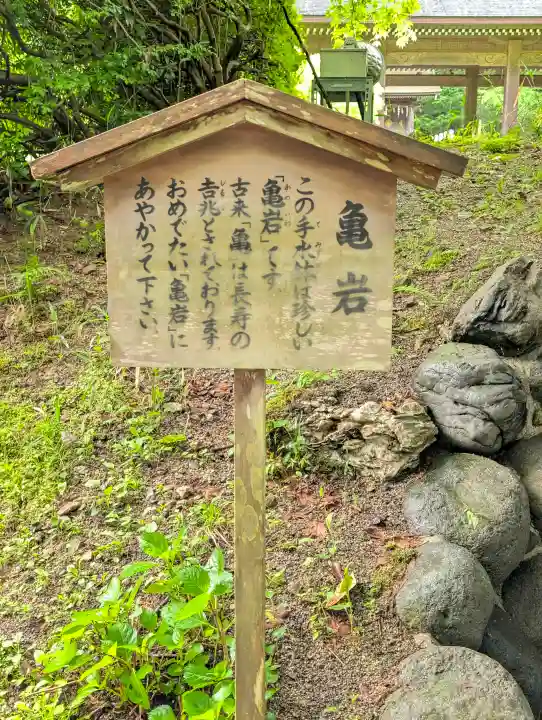 亀岩
この手水は珍しい
「亀岩」です。
古来「亀」は長寿の
吉兆とされております。
おめでたい「亀岩」に
あやかって下さい。